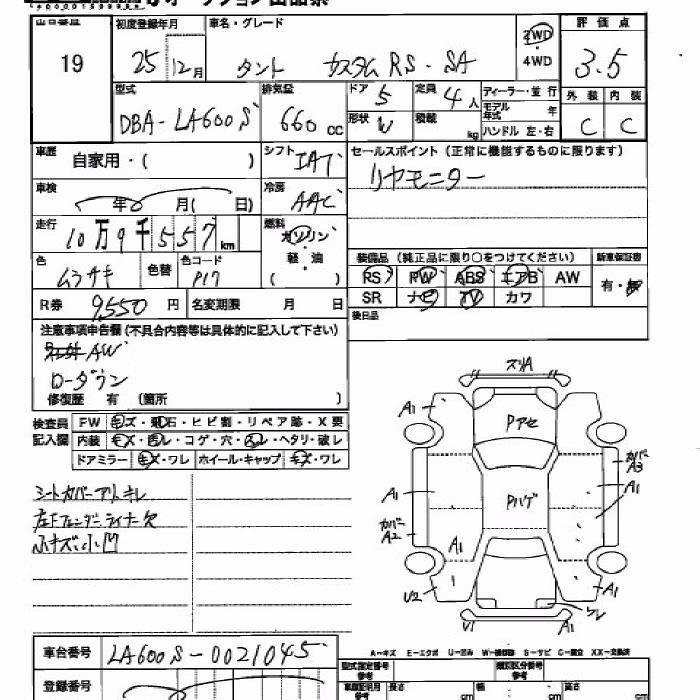 初度登録年月 車名・グレード 2WD 評価点
19 25年12月 タント カスタムRS・SA 4WD 3.5
型式 排気量 ドア 5 定員 4人 ディーラー・並行 外装 内装
DBA-LA600S 660cc 形状 V 積載 kg モデル年式 年 ハンドル 左・右 C C
車歴 自家用・( ) シフト IAT セールスポイント(正常に機能するものに限ります)
リヤモニター
車検 年 月( 日) 冷房 AAC
走行 10万9千557km 燃料 ガソリン・軽・油 ( )
装備品(純正品に限り○をつけてください) 新車保証書
色 ムラサキ 色替 色コード P17
PS PW ABS エアB AW 有・無
R券 9,550円 名変期限 月 日
SR ナビ TV カワ
後日品
注意事項申告欄(不具合内容等は具体的に記入して下さい)
AW
ローダウン
修復歴 有 (箇所 )
検査員記入欄 FW キズ・飛石・ヒビ割・リペア跡・X要
内装 キズ・汚レ・コゲ・穴・スレ・ヘタリ・破レ
ドアミラー キズ・ワレ ホイール・キャップ キズ・ワレ
シートカバー
左Fフェンダーライナー欠
小キズ、小凹
スリA
A1 Pアセ
カバーA3
A1 Pハゲ A1
カバーA2
A1 A1
U2 ワレ
V1 A1
A-キズ E-エクボ U-凹み W-補修跡 S-サビ C-腐立 XX-交換済
車台番号 LA600S-0021045
型式指定番号 類別区分番号
登録番号
長さ cm 幅 cm 高さ cm